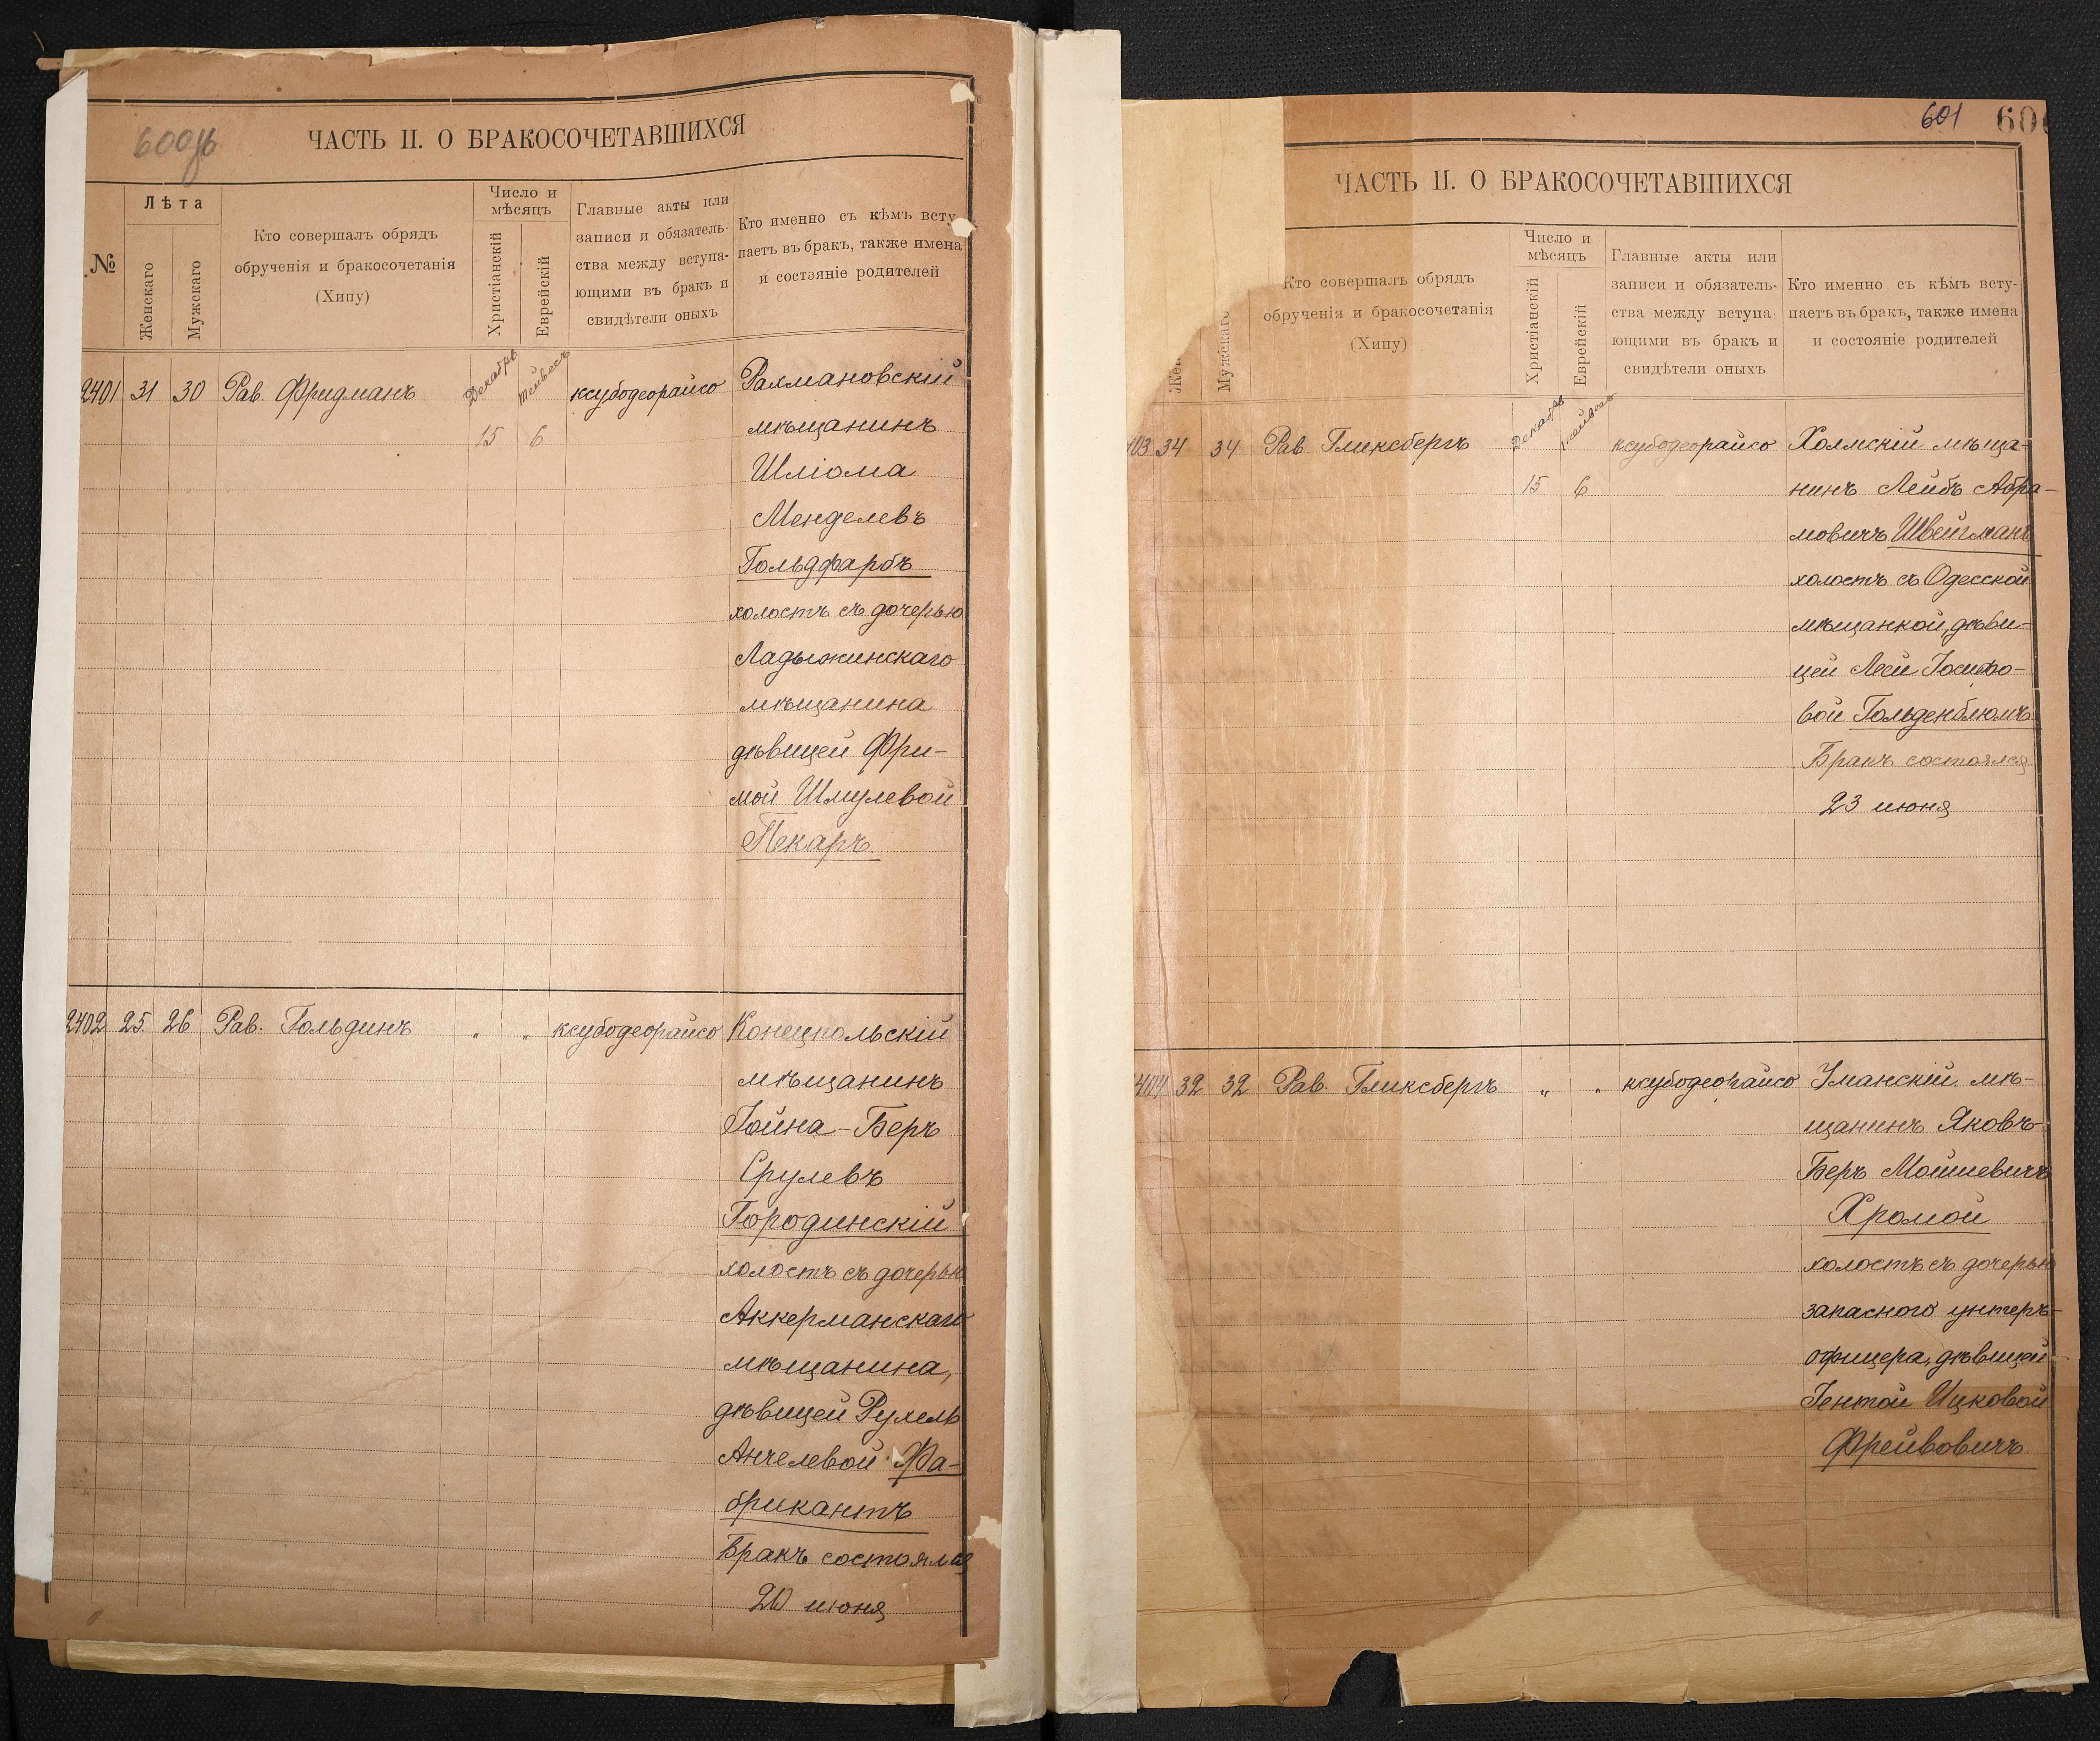 600об
ЧАСТЬ II. О БРАКОСОЧЕТАВШИХСЯ
№
Лѣта
Женскаго
Мужскаго
Кто совершалъ обрядъ
обрученія и бракосочетанія
(Хипу)
Число и
мѣсяцъ
Христіанскій
Еврейскій
Главные акты или
записи и обязатель-
ства между вступа-
ющими въ бракъ и
свидѣтели оныхъ
Кто именно съ кѣмъ всту
паетъ въ бракъ, также имена
и состояніе родителей
2401 31 30 Рав. Фридманъ Декабрь Тейвесъ 15 6 ксубодеорайсо
Рахмановскій
мѣщанинъ
Шліома
Менделевъ
Гольдфарбъ
холостъ съ дочерью
Ладыжинскаго
мѣщанина
дѣвицей Фри-
мой Шмулевой
Пекаръ.
2402 25 26 Рав. Гольдинъ " " ксубодеорайсо
Конецпольскій
мѣщанинъ
Іойна-Беръ
Срулевъ
Городинскій
холостъ съ дочерью
Аккерманскаго
мѣщанина,
дѣвицей Рухель
Анчелевой Фа-
брикантъ
Бракъ состоялся
20 июня
601 60
ЧАСТЬ II. О БРАКОСОЧЕТАВШИХСЯ
Жен
Мужскаго
Кто совершалъ обрядъ
обрученія и бракосочетанія
(Хипу)
Число и
мѣсяцъ
Христіанскій
Еврейскій
Главные акты или
записи и обязатель-
ства между вступа-
ющими въ бракъ и
свидѣтели оныхъ
Кто именно съ кѣмъ всту-
паетъ въ бракъ, также имена
и состояніе родителей
403 34 34 Рав. Гликсбергъ Декабрь Тейвесъ 15 6 ксубодеорайсо
Холмскій мѣща-
нинъ Лейбъ Абра-
мовичъ Швейгманъ
холостъ съ Одесской
мѣщанкой, дѣви-
цей Леей Іосифо-
вой Гольденблюмъ
Бракъ состоялся
23 июня
404 32 32 Рав. Гликсбергъ " " ксубодеорайсо
Уманскій мѣ-
щанинъ Яковъ-
Беръ Мошшевичъ
Хромой
холостъ съ дочерью
запасного унтеръ-
офицера, дѣвицей
Іентой Ицковой
Фрейвовичъ